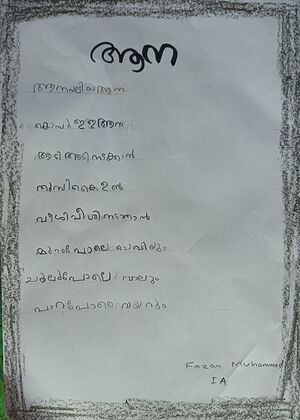 ആന
ആനവലിയ ആന
കൊമ്പു ഉള്ള ആന
ആടി ആടി നടക്കാൻ
തുമ്പികൈ
വീശിവീശിനടത്താൻ
മുറം പോലെ ചെവിയും
ചൂലുപോലെ വാലും
പാറപോലെ വയറും
Fazan Muhammed
IA